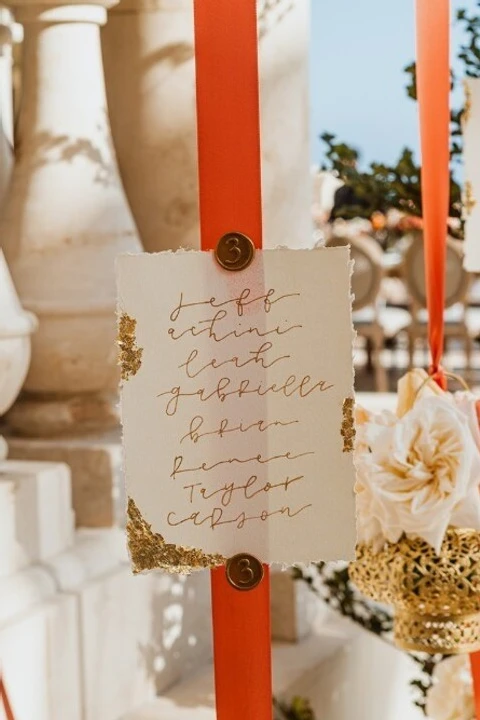 3
Jeff
achini
leah
gabriella
brian
Renee
Taylor
carson
3